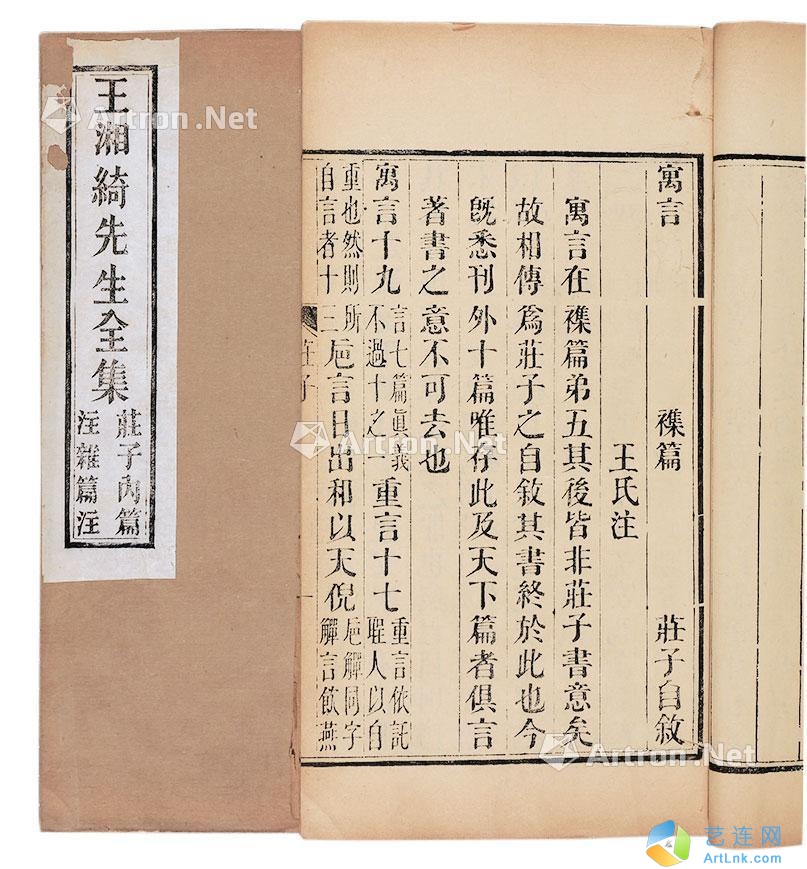 王湘綺先生全集
莊子內篇
注雜篇注
寓言 襍篇 莊子自敘
王氏注
寓言在襍篇弟五其後皆非莊子書意矣
故相傳爲莊子之自敘其書終於此也今
旣悉刊外十篇唯存此及天下篇者俱言
著書之意不可去也
寓言十九言七篇眞義不過十之一重言十七重言依託聖人以自
重也然則所自言者十三巵言日出和以天倪巵觶同字觶言飲燕
莊子
一
Artron.Net
Artron.Net
Artron.Net
艺连网
ArtLnk.com